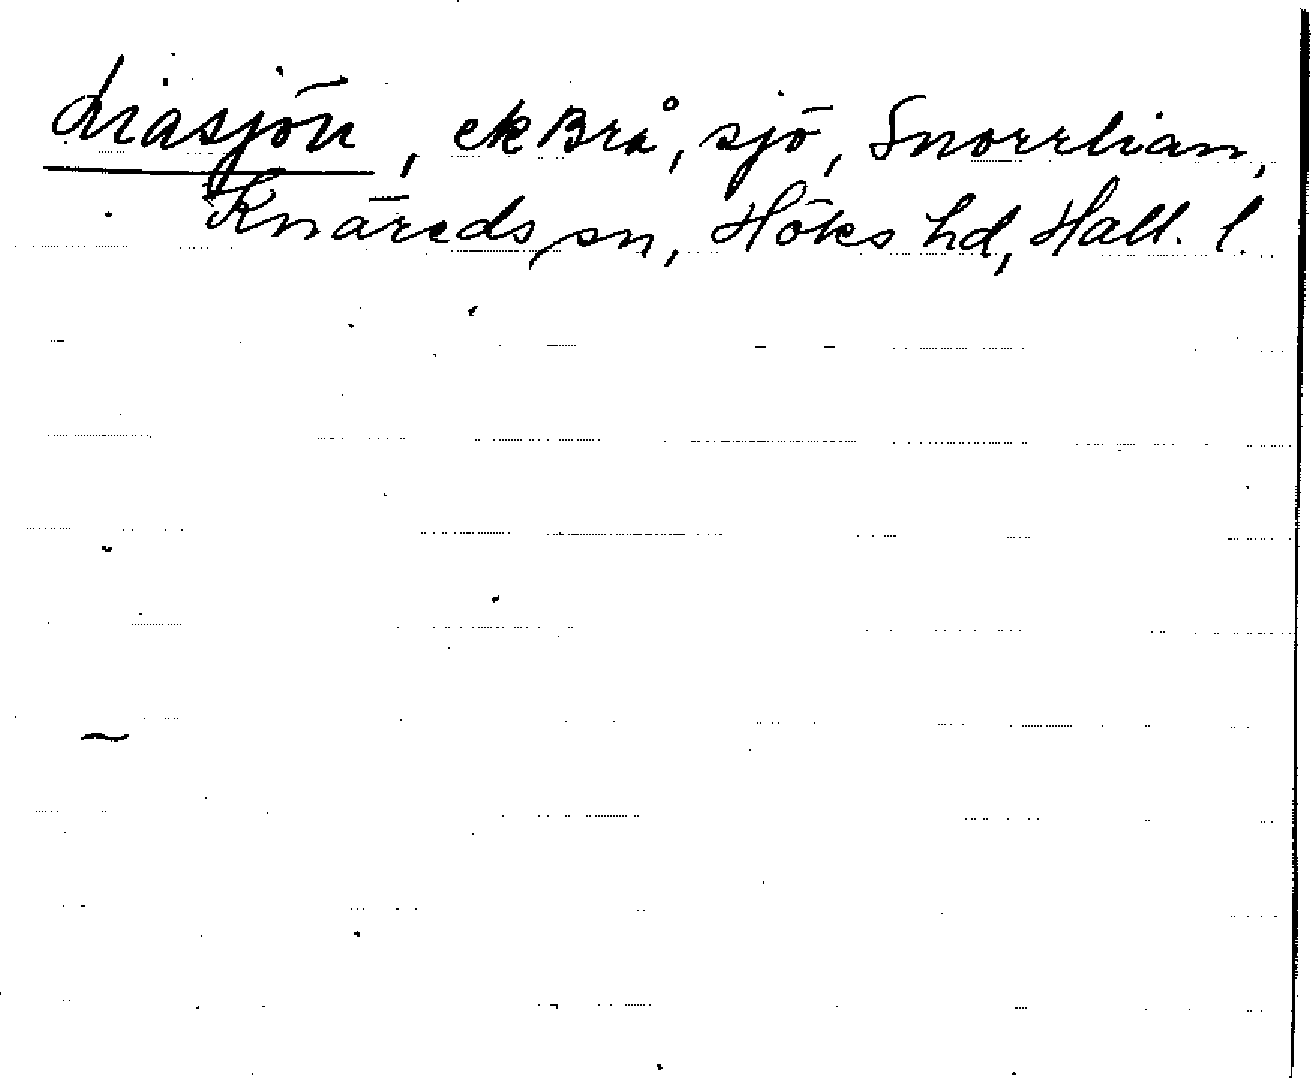 Liasjön, ek Brå, sjö, Snorrlian,
Knäreds sn, Höks hd, Hall. l.